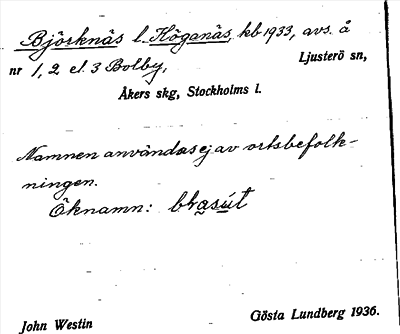 Björknäs l. Höganäs, kb 1933, avs. å
nr 1, 2 el. 3 Bolby,
Ljusterö sn,
Åkers skg, Stockholms l.
Namnen användas ej av ortsbefolk-
ningen.
Öknamn:
John Westin
Gösta Lundberg 1936.